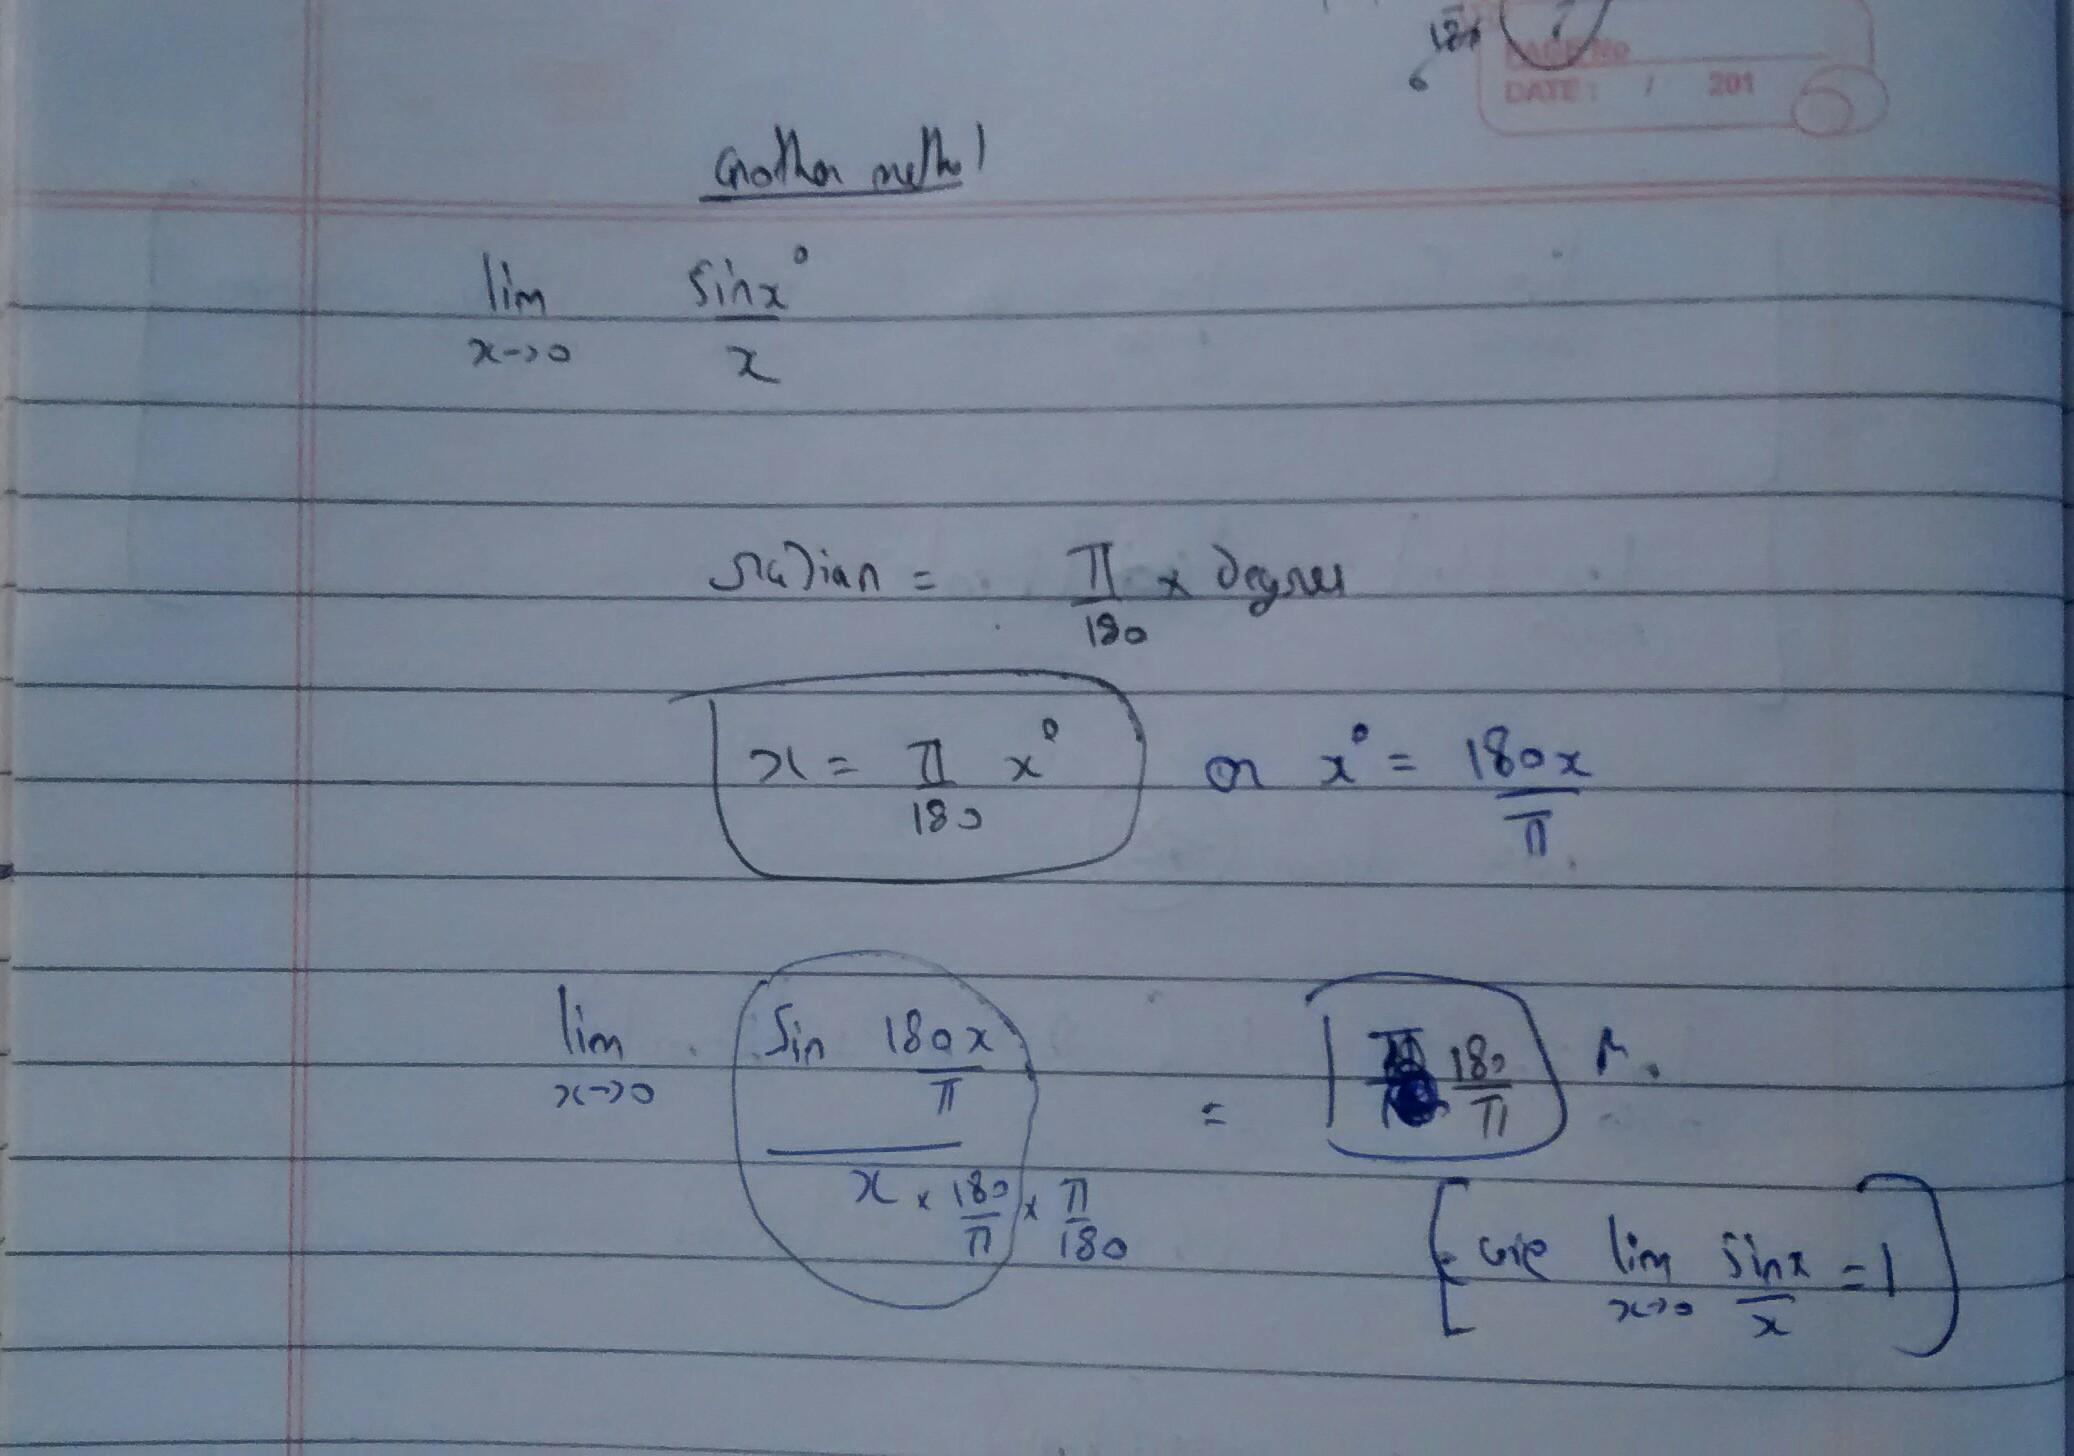 180
PAGE No
DATE: / 201
another method
lim x→0 sinx° / x
radian = π/180 × degree
x = π/180 x° or x° = 180x/π
lim x→0 sin 180x/π / x × 180/π × π/180 = 180/π
[ use lim x→0 sinx/x = 1 ]